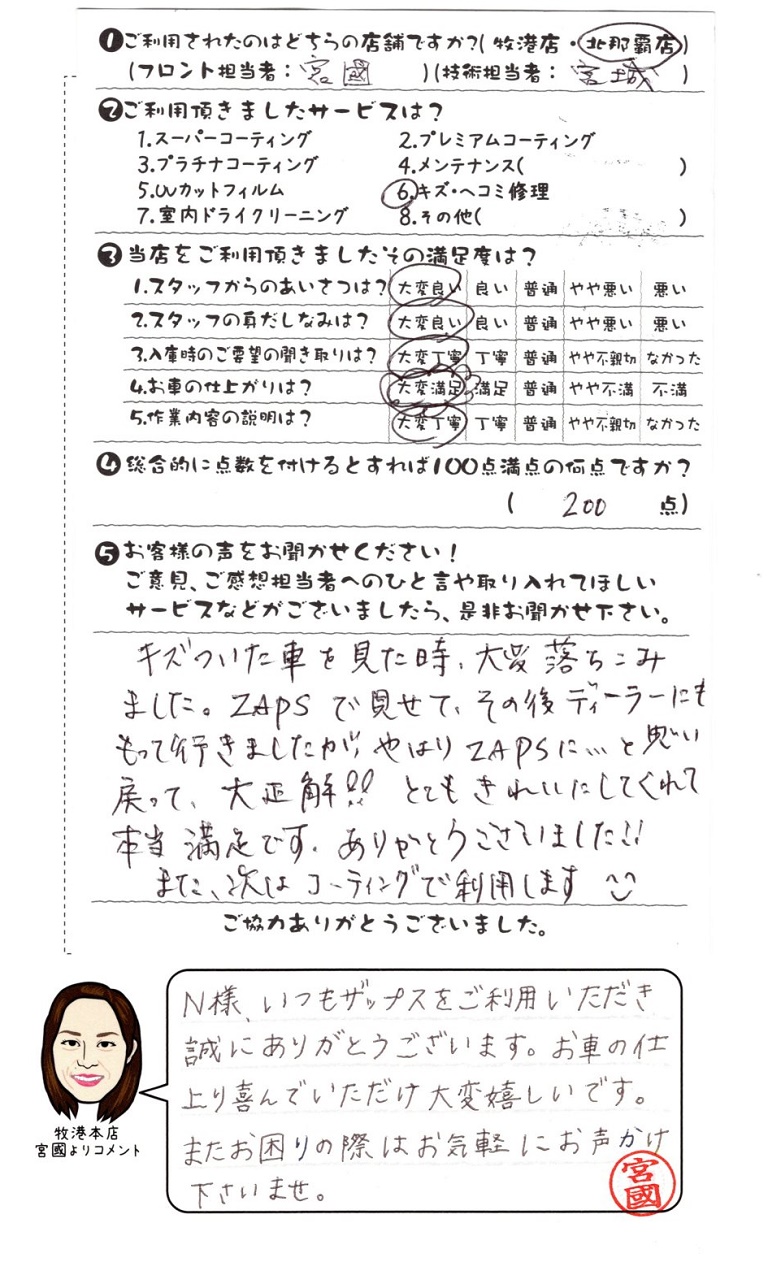 ❶ご利用されたのはどちらの店舗ですか?(牧港店・北那覇店)
(フロント担当者：宮國 )(技術担当者：宮城 )
❷ご利用頂きましたサービスは?
1.スーパーコーティング 2.プレミアムコーティング
3.プラチナコーティング 4.メンテナンス( )
5.UVカットフィルム 6.キズ・ヘコミ修理
7.室内ドライクリーニング 8.その他( )
❸当店をご利用頂きましたその満足度は?
1.スタッフからのあいさつは? 大変良い 良い 普通 やや悪い 悪い
2.スタッフの身だしなみは? 大変良い 良い 普通 やや悪い 悪い
3.入庫時のご要望の聞き取りは? 大変丁寧 丁寧 普通 やや不親切 なかった
4.お車の仕上がりは? 大変満足 満足 普通 やや不満 不満
5.作業内容の説明は? 大変丁寧 丁寧 普通 やや不親切 なかった
❹総合的に点数を付けるとすれば100点満点の何点ですか?
( 200 点)
❺お客様の声をお聞かせください!
ご意見、ご感想担当者へのひと言や取り入れてほしい
サービスなどがございましたら、是非お聞かせ下さい。
キズついた車を見た時、大変落ちこみ
ました。ZAPSで見せて、その後ディーラーにも
もって行きましたが、やはりZAPSに…と思い
戻って、大正解!! とてもきれいにしてくれて
本当満足です。ありがとうございました!!
また、次はコーティングで利用します
ご協力ありがとうございました。
N様、いつもザップスをご利用いただき
誠にありがとうございます。お車の仕
上り喜んでいただけ大変嬉しいです。
またお困りの際はお気軽にお声かけ
下さいませ。
宮國
牧港本店
宮國よりコメント